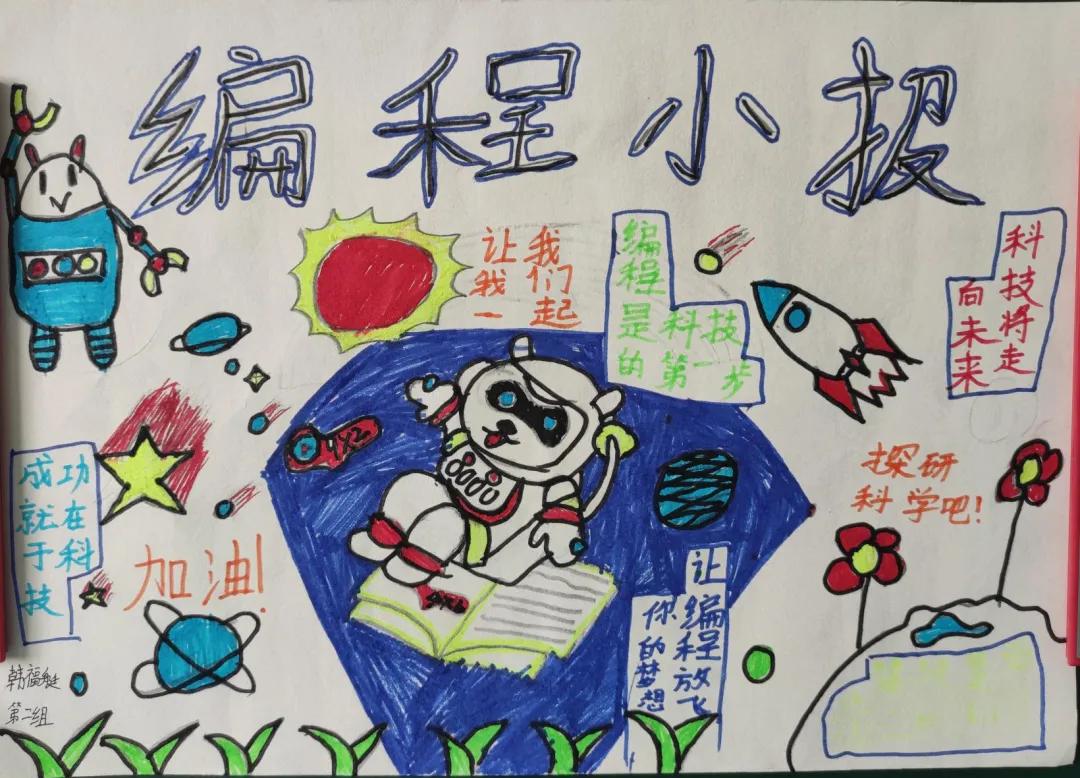 编程小报
让我们一起
探研
科学吧!
编程
是科技
的第一步
科技将走
向未来
成功
就在
于科
技
加油!
让编程放飞
你的梦想
韩福艇
第二组